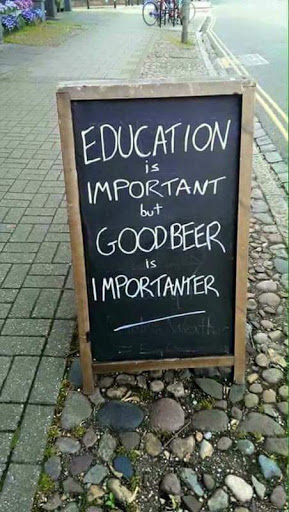 EDUCATION
is
IMPORTANT
but
GOOD BEER
is
IMPORTANTER